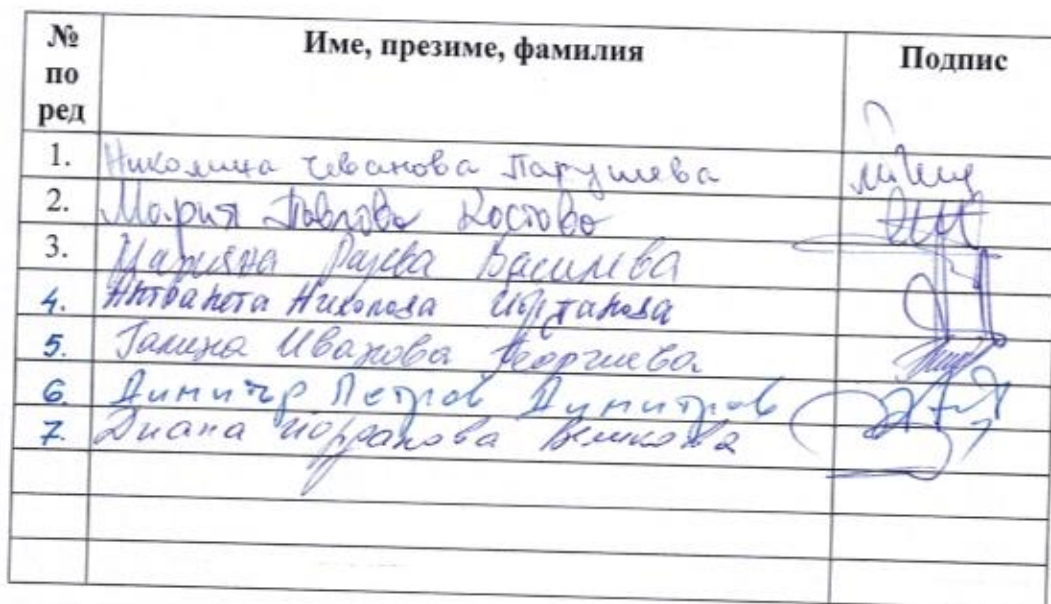 № по ред Име, презиме, фамилия Подпис
1. Николина Иванова Парушева
2. Мария Павлова Костова
3. Марияна Василева
4. Антоанета Николова Йорданова
5. Галина Иванова Георгиева
6. Димитър Петров Димитров
7. Диана Йорданова Великова